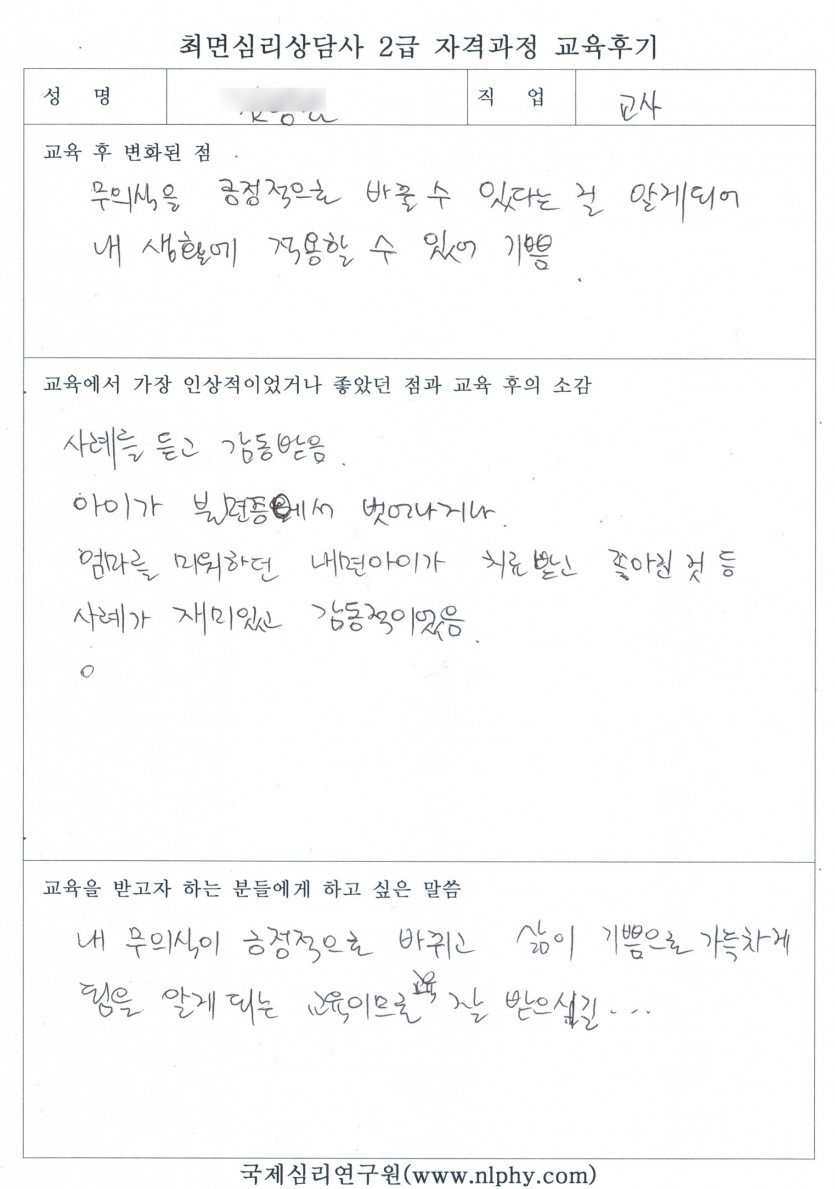 최면심리상담사 2급 자격과정 교육후기
성 명 직 업 교사
교육 후 변화된 점
무의식을 긍정적으로 바꿀 수 있다는 걸 알게되어
내 생활에 적용할 수 있어 기쁨.
교육에서 가장 인상적이었거나 좋았던 점과 교육 후의 소감
사례를 듣고 감동받음.
아이가 불면증에서 벗어나거나.
엄마를 미워하던 내면아이가 치료받고 좋아진 것 등
사례가 재미있고 감동적이었음.
교육을 받고자 하는 분들에게 하고 싶은 말씀
내 무의식이 긍정적으로 바뀌고 삶이 기쁨으로 가득차게
됨을 알게 되는 교육이므로 교육 잘 받으시길...
국제심리연구원(www.nlphy.com)